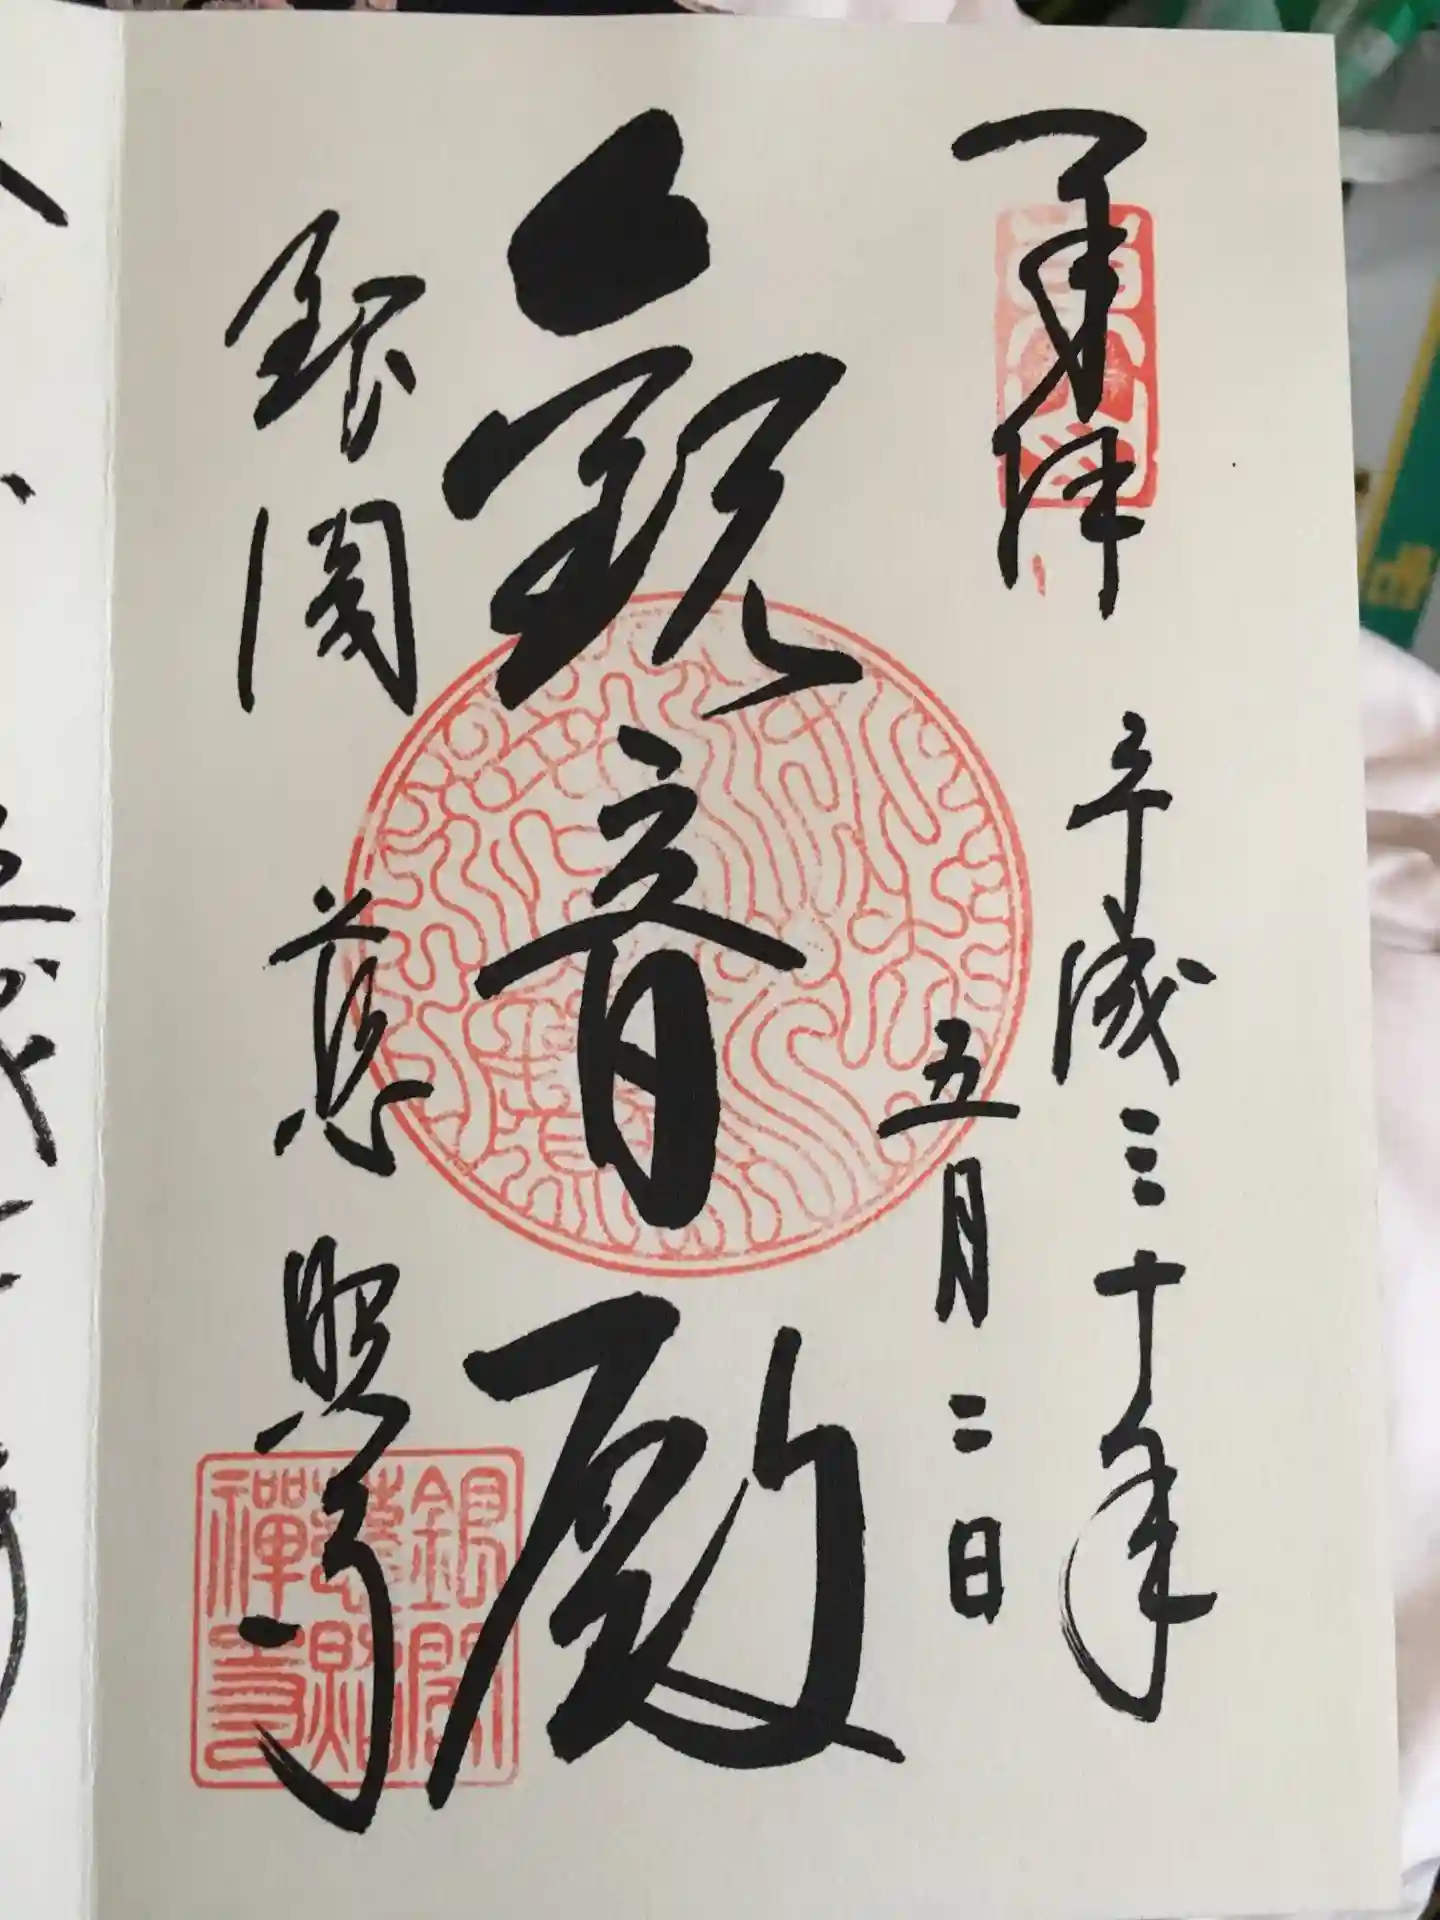 奉拝
平成三十年
五月二日
観音殿
銀閣
慈照寺
銀閣
慈照
禅寺